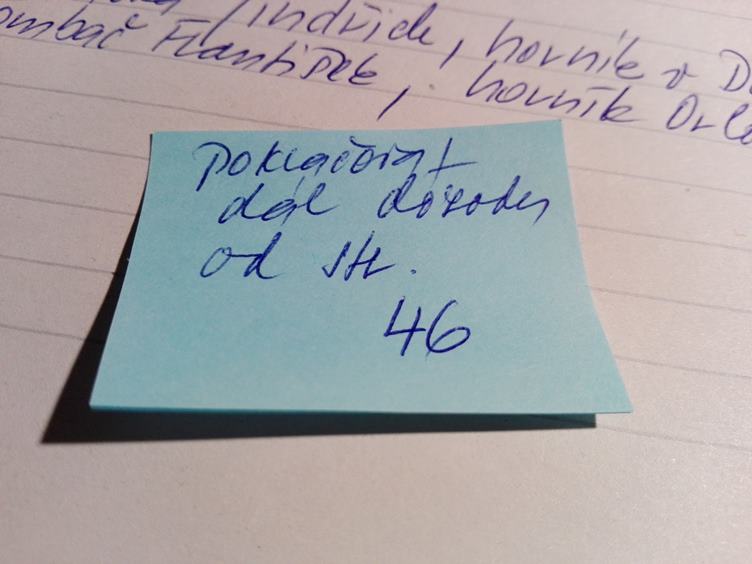 Jindřich, horník v
František, horník Orlo
Pokračovat
dál
od str.
46